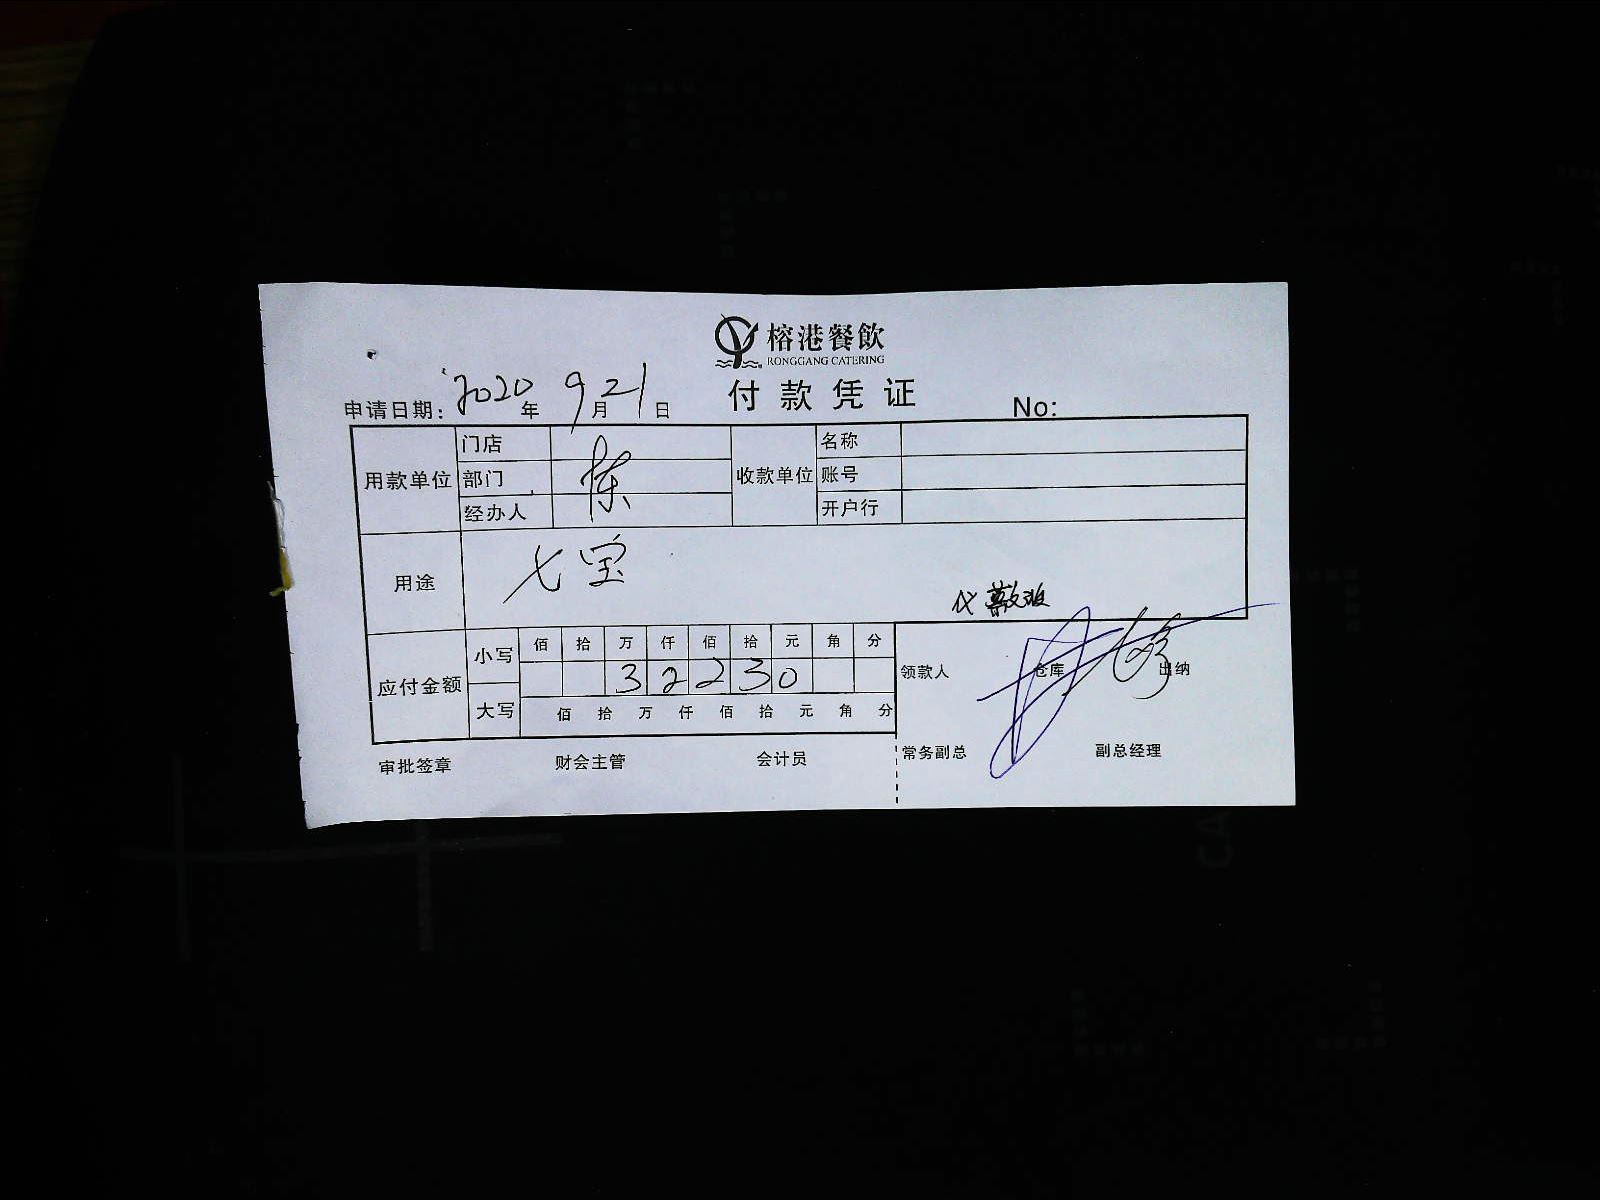 榕港餐飲
RONGGANG CATERING
付款凭证
申请日期: 2020年 9月21日 No:
用款单位 门店 收款单位 名称
部门 陈 账号
经办人 开户行
用途 七宝
代
应付金额 小写 佰 拾 万 仟 佰 拾 元 角 分
3 2 2 3 0
大写 佰 拾 万 仟 佰 拾 元 角 分
领款人 仓库 出纳
审批签章 财会主管 会计员 常务副总 副总经理